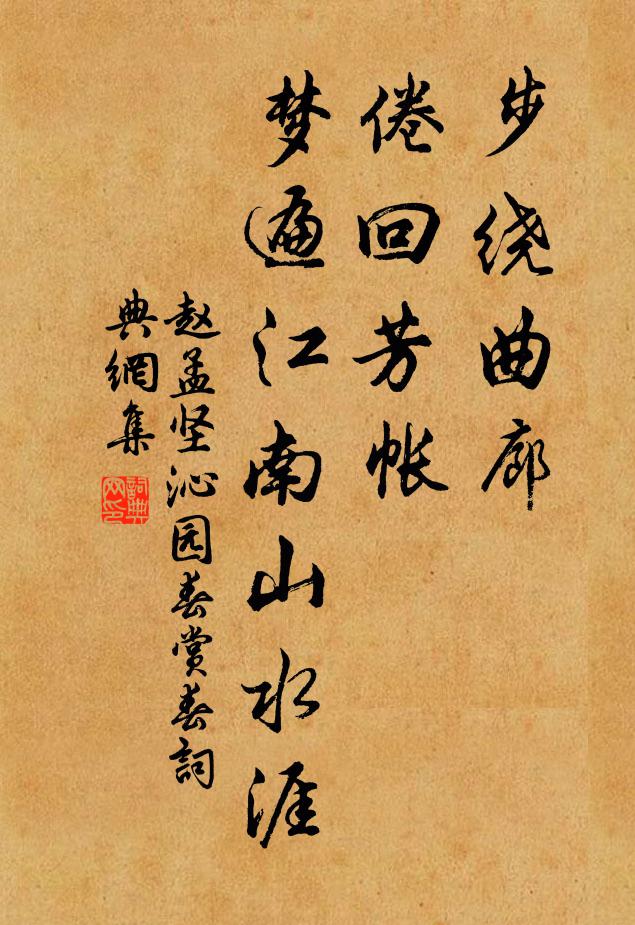 步绕曲廊
倦回芳帐
梦遍江南山水涯
赵孟坚沁园春赏春詞
典網集
詞典網印